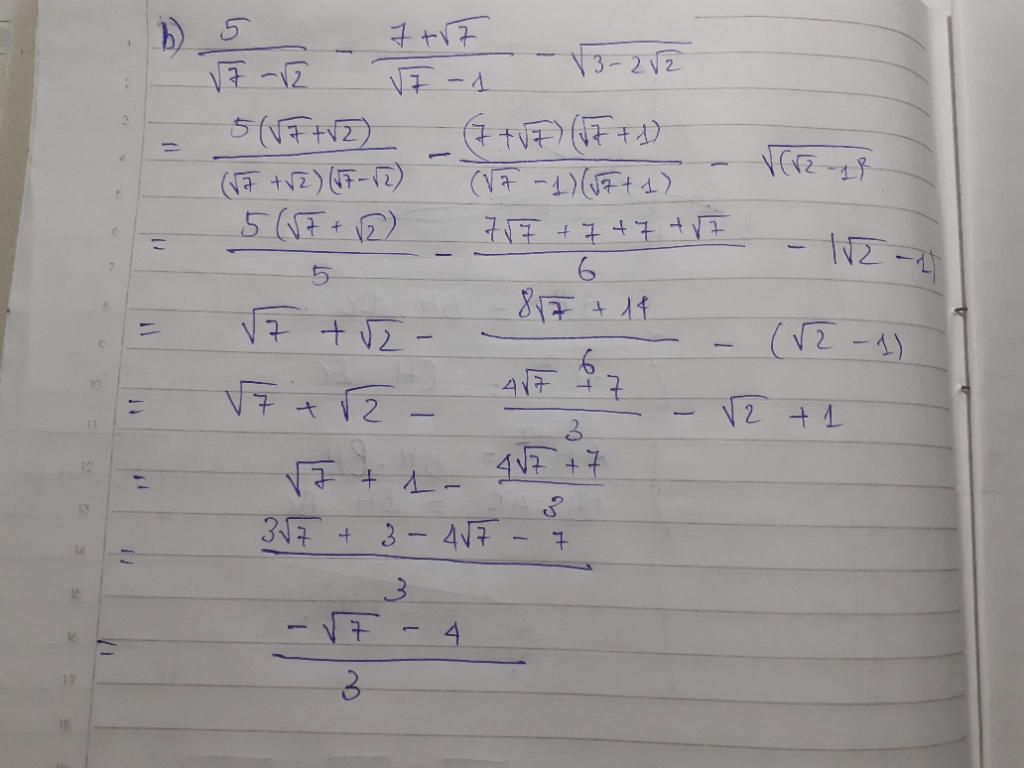 b) 5/(√7 - √2) - (7 + √7)/(√7 - 1) - √(3 - 2√2)
= 5(√7 + √2)/((√7 + √2)(√7 - √2)) - (7 + √7)(√7 + 1)/((√7 - 1)(√7 + 1)) - √((√2 - 1)²)
= 5(√7 + √2)/5 - (7√7 + 7 + 7 + √7)/6 - |√2 - 1|
= √7 + √2 - (8√7 + 14)/6 - (√2 - 1)
= √7 + √2 - (4√7 + 7)/3 - √2 + 1
= √7 + 1 - (4√7 + 7)/3
= (3√7 + 3 - 4√7 - 7)/3
= (-√7 - 4)/3